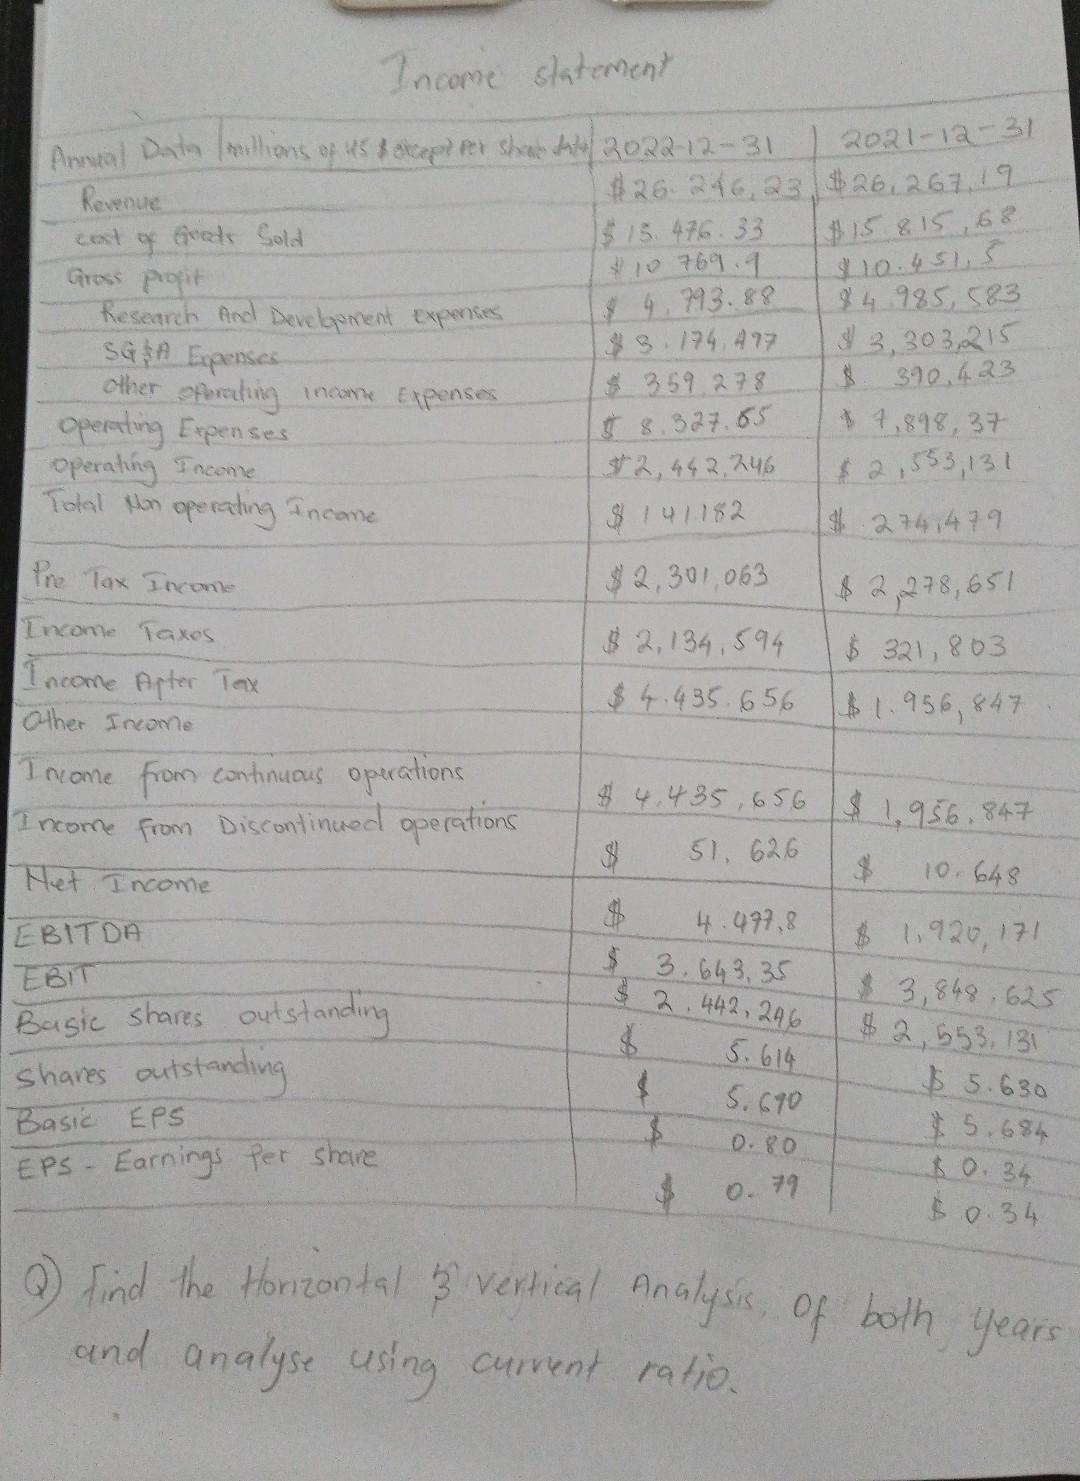 Income statement
Annual Data | millions of US $ except Per share data | 2022-12-31 | 2021-12-31
Revenue $26.246,23 $26,267,19
cost of Goods Sold $15.476.33 $15 815,68
Gross profit $10 769.9 $10.451,5
Research And Development expenses $4,793.88 $4.985,583
SG&A Expenses $3.174,497 $3,303,215
other operating income Expenses $359,278 $390,423
Operating Expenses $8.327.65 $7,898,37
operating Income $2,442,246 $2,553,131
Total Non operating Income $141.182 $274,479
Pre Tax Income $2,301,063 $2,278,651
Income Taxes $2,134,594 $321,803
Income After Tax $4.435.656 $1.956,847
Other Income
Income from continuous operations $4,435,656 $1,956.847
Income from Discontinued operations $51,626 $10.648
Net Income $4.497,8 $1,920,171
EBITDA $3.643,35 $3,848,625
EBIT $2,442,246 $2,553,131
Basic shares outstanding $5.614 $5.630
Shares outstanding $5.690 $5.684
Basic EPS $0.80 $0.34
EPS - Earnings Per share $0.79 $0.34
Q) find the Horizontal & vertical Analysis, Of both years
and analyse using current ratio.